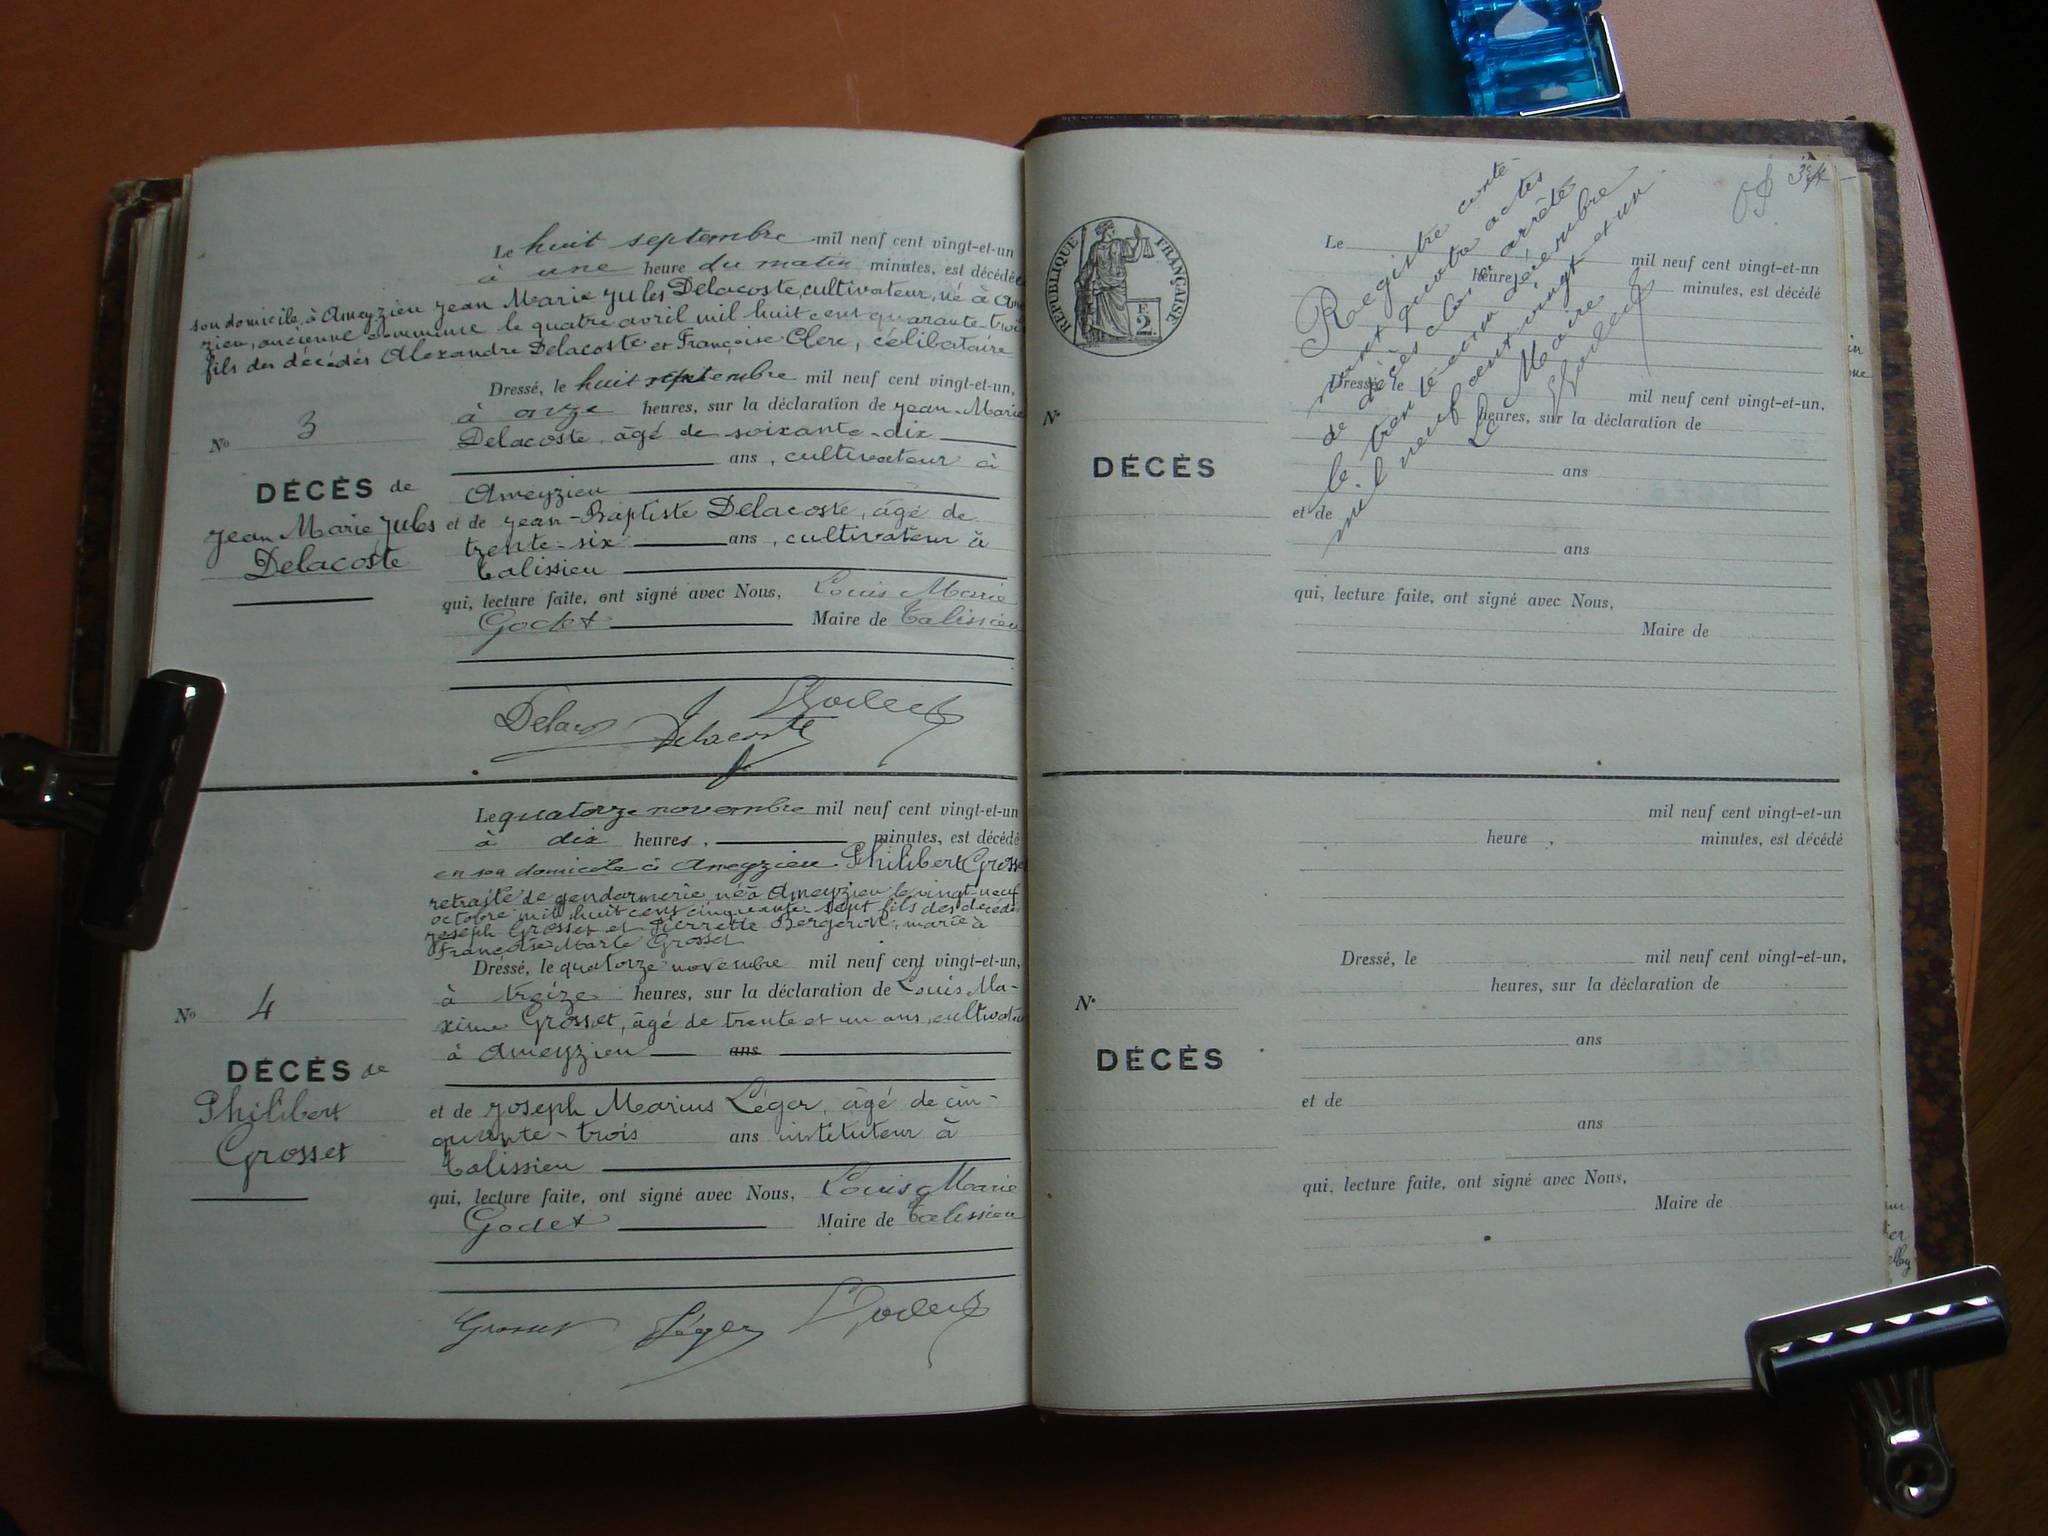 Le huit septembre mil neuf cent vingt-et-un
à une heure du matin minutes, est décédé en
son domicile, à Ameyzieu Jean Marie Jules Delacoste, cultivateur, né à Amey
zieu, ancienne commune le quatre avril mil huit cent quarante-trois
fils des décédés Alexandre Delacoste et Françoise Clerc, célibataire
Dressé, le huit septembre mil neuf cent vingt-et-un,
à onze heures, sur la déclaration de Jean-Marie
Delacoste, âgé de soixante-dix
ans, cultivateur à
Ameyzieu
N° 3
DÉCÈS de
Jean Marie Jules
Delacoste
et de Jean-Baptiste Delacoste, âgé de
trente-six ans, cultivateur à
Talissieu
qui, lecture faite, ont signé avec Nous, Louis Marie
Godet Maire de Talissieu
Delacoste
Le quatorze novembre mil neuf cent vingt-et-un
à dix heures, minutes, est décédé
en son domicile à Ameyzieu Philibert Grosset
retraité de gendarmerie né à Ameyzieu le vingt-neuf
octobre mil huit cent cinquante-sept fils des décédés
Joseph Grosset et Pierrette Bergeron, marié à
Françoise Marie Grosset
Dressé, le quatorze novembre mil neuf cent vingt-et-un,
à treize heures, sur la déclaration de Louis Ma-
xime Grosset, âgé de trente et un ans, cultivateur
à Ameyzieu ans
N° 4
DÉCÈS de
Philibert
Grosset
et de Joseph Marius Léger, âgé de cin-
quante-trois ans instituteur à
Talissieu
qui, lecture faite, ont signé avec Nous, Louis Marie
Godet Maire de Talissieu
Grosset Léger LGodet
RÉPUBLIQUE FRANÇAISE
E
2.
Registre conte-
nant quatre actes
de décès clos et arrêté
le trente et un décembre
mil neuf cent vingt-et-un
Le Maire
LGodet
Le mil neuf cent vingt-et-un
heure minutes, est décédé
Dressé, le mil neuf cent vingt-et-un,
heures, sur la déclaration de
N°
ans
DÉCÈS
et de
ans
qui, lecture faite, ont signé avec Nous,
Maire de
mil neuf cent vingt-et-un
heure, minutes, est décédé
Dressé, le mil neuf cent vingt-et-un,
heures, sur la déclaration de
N°
ans
DÉCÈS
et de
ans
qui, lecture faite, ont signé avec Nous,
Maire de